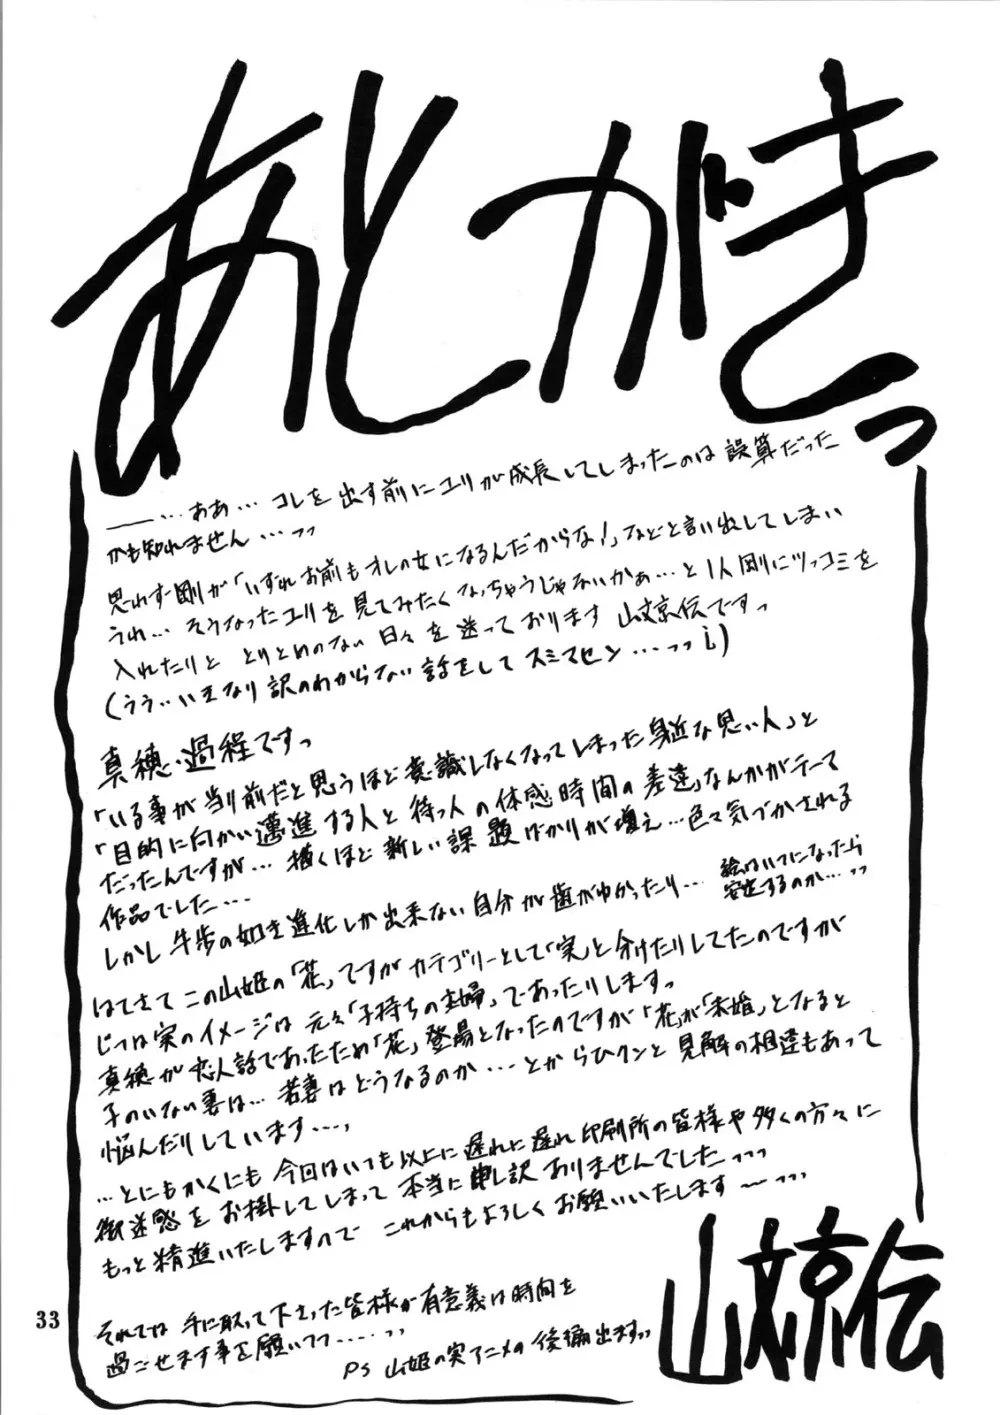 あとがきっ
――…ああ… コレを出す前にユリが成長してしまったのは誤算だった
かも知れません…っっ
思わず剛が「いずれお前もオレの女になるんだからな!」などと言い出してしまい
うわ… そうなったユリを見てみたくなっちゃうじゃないかぁ…と1人剛にツッコミを
入れたりと とりとめのない日々を送っております 山文京伝ですっ
(うう‥いきなり訳のわからない話をしてスミマセン…っっi)
真穂・過程ですっ
「いる事が当り前だと思うほど意識しなくなってしまった身近な思い人」と
「目的に向かい邁進する人と待つ人の体感時間の差違」なんかがテーマ
だったんですが… 描くほど新しい課題ばかりが増え…色々気づかされる
作品でした…
しかし牛歩の如き進化しか出来ない自分が歯がゆかったり… 絵はいつになったら
安定するのか…っっ
はてさてこの山姫の「花」ですがカテゴリーとして「実」と分けたりしてたのですが
じつは実のイメージは元々「子持ちの主婦」であったりしますっ
真穂が恋人話であったため「花」登場となったのですが「花」が「未婚」となると
子のいない妻は… 若妻はどうなるのか…とからひクンと見解の相違もあって
悩んだりしています…、
…とにもかくにも今回はいつも以上に遅れに遅れ印刷所の皆様や多くの方々に
御迷惑をお掛してしまって本当に申し訳ありませんでしたーっっっ
もっと精進いたしますのでこれからもよろしくお願いいたします〜っっっ
それでは手に取って下さった皆様が有意義な時間を
過ごせます事を願いつつ……っっ
PS 山姫の実アニメの後編出ますっっ
山文京伝
33